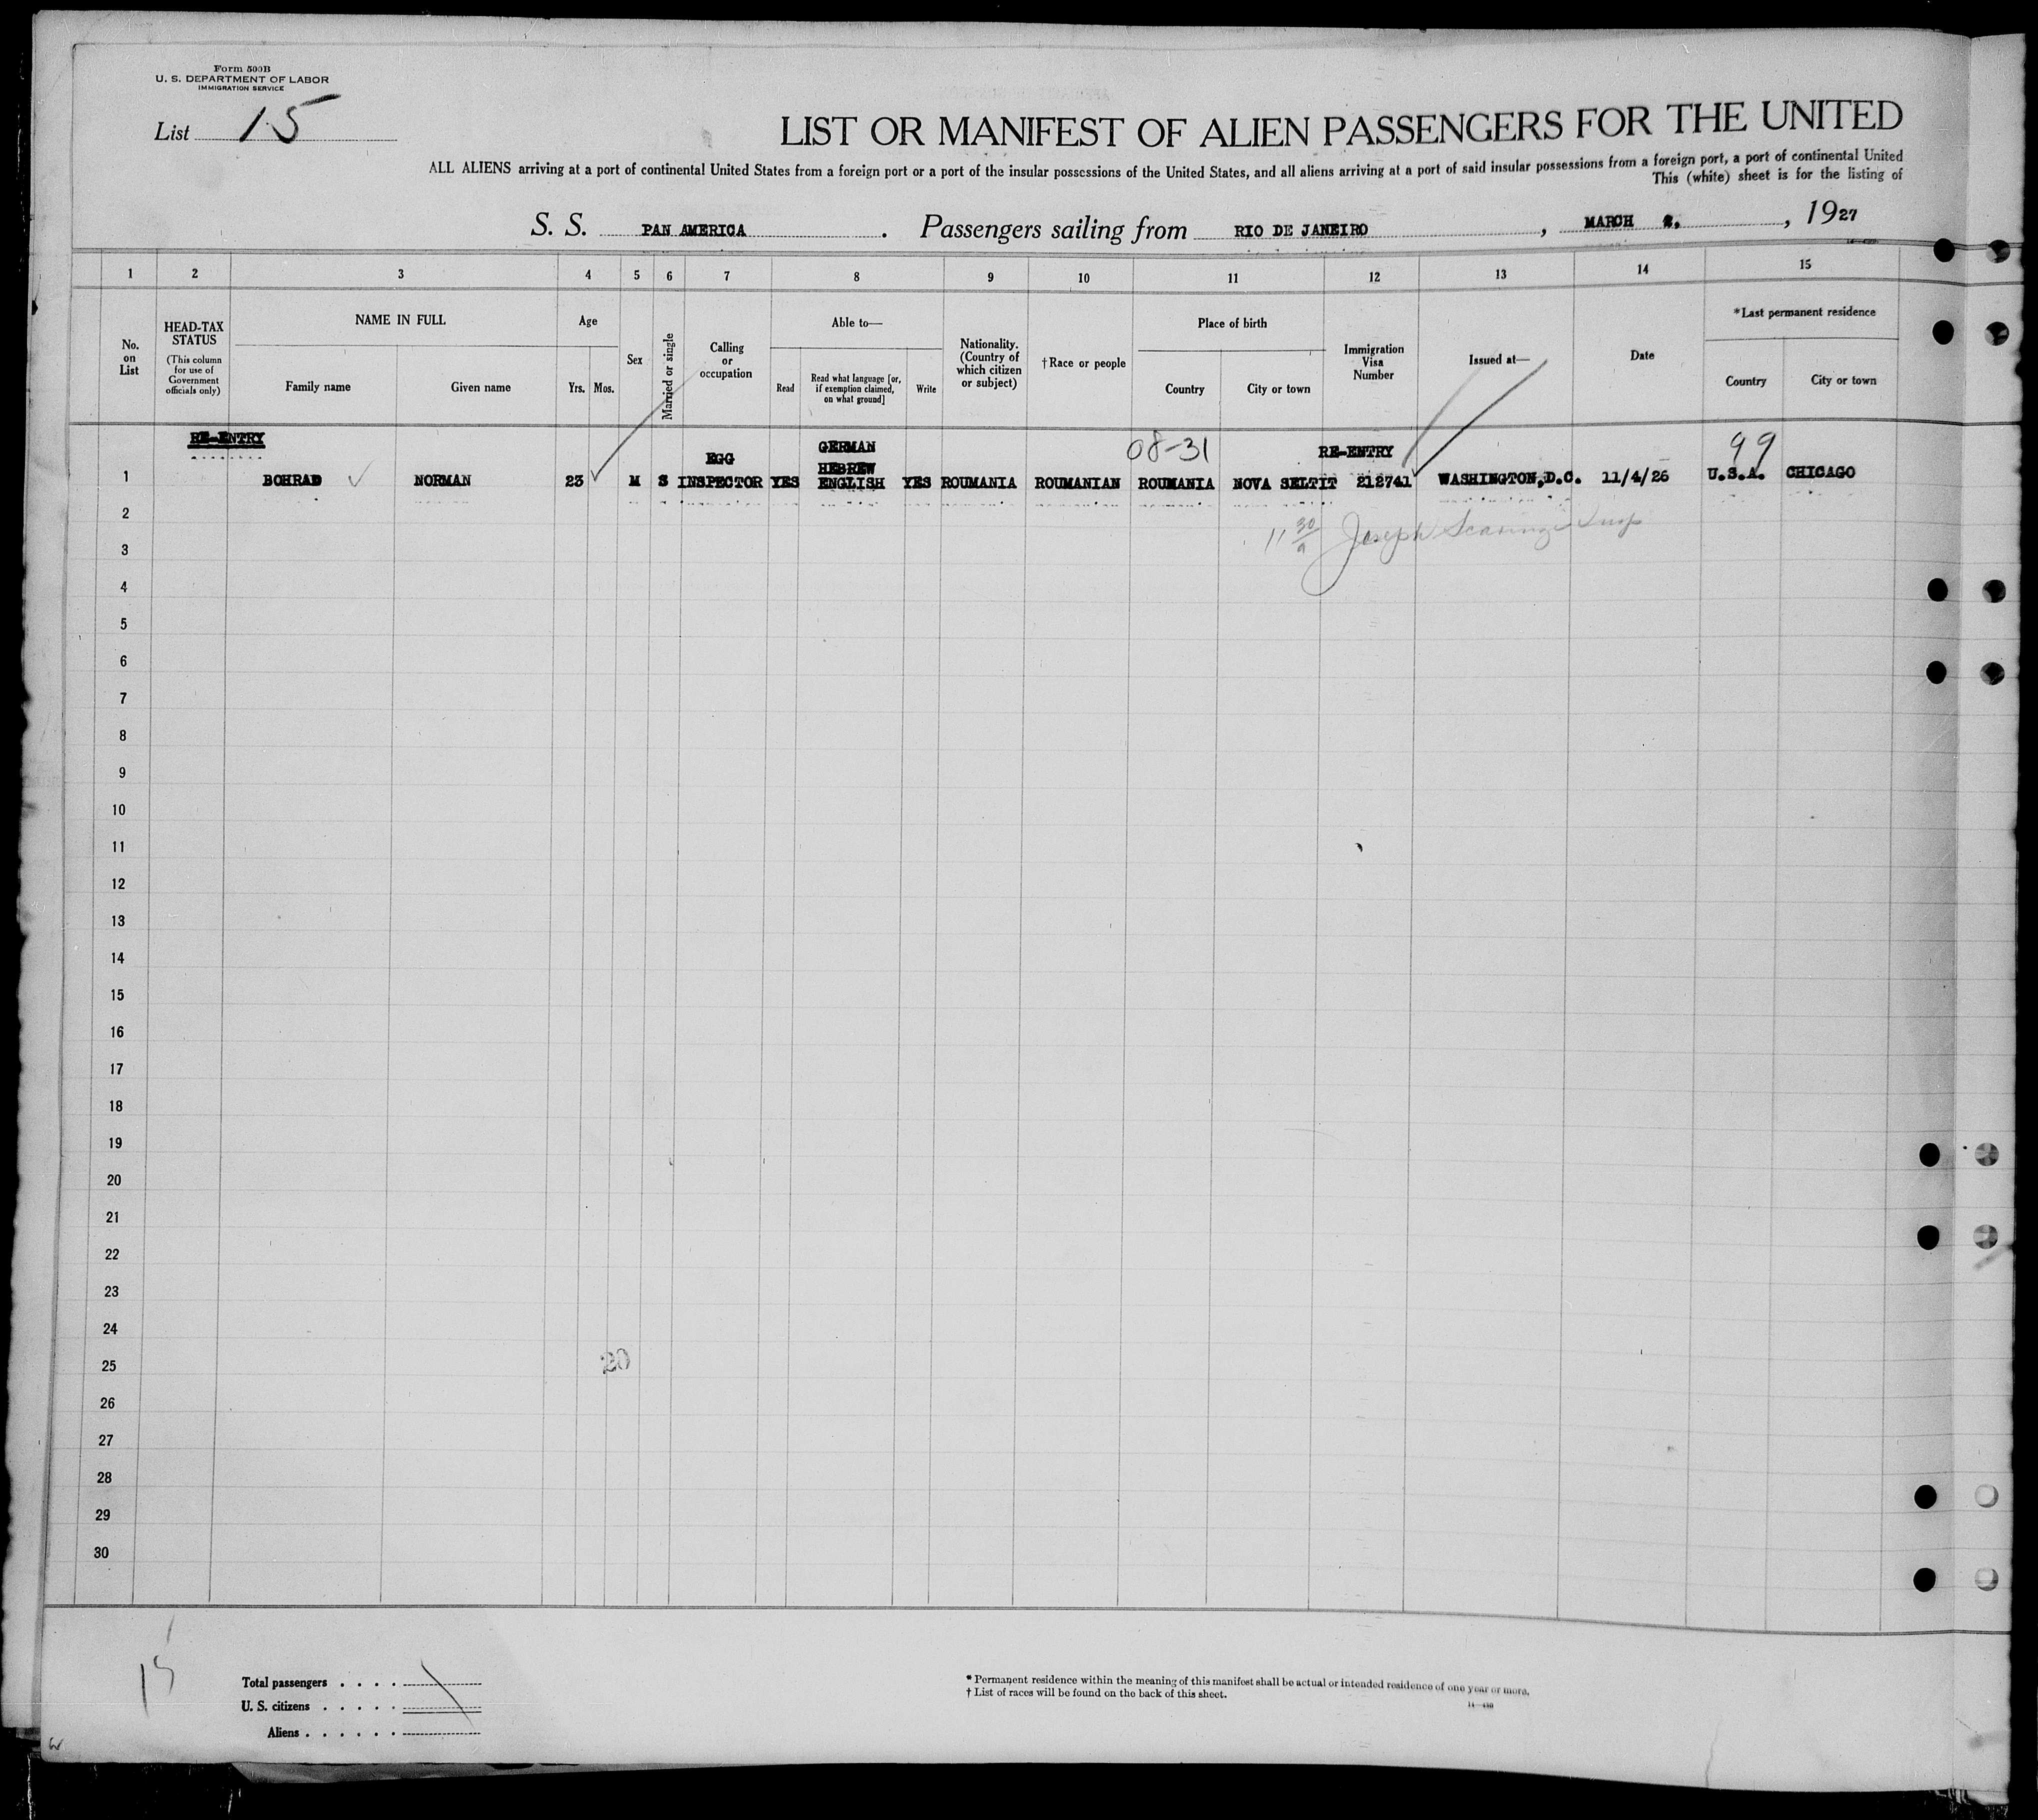 Form 500B
U. S. DEPARTMENT OF LABOR
IMMIGRATION SERVICE
List 15
LIST OR MANIFEST OF ALIEN PASSENGERS FOR THE UNITED
ALL ALIENS arriving at a port of continental United States from a foreign port or a port of the insular possessions of the United States, and all aliens arriving at a port of said insular possessions from a foreign port, a port of continental United
This (white) sheet is for the listing of
S. S. PAN AMERICA. Passengers sailing from RIO DE JANEIRO, MARCH 2., 1927
1 2 3 4 5 6 7 8 9 10 11 12 13 14 15
No. on List
HEAD-TAX STATUS
(This column for use of Government officials only)
NAME IN FULL
Family name
Given name
Age
Yrs. Mos.
Sex
Married or single
Calling or occupation
Able to—
Read
Read what language [or, if exemption claimed, on what ground]
Write
Nationality. (Country of which citizen or subject)
†Race or people
Place of birth
Country
City or town
Immigration Visa Number
Issued at—
Date
*Last permanent residence
Country
City or town
RE-ENTRY
GERMAN
08-31
RE-ENTRY
99
EGG
HEBREW
1 BOHRAD NORMAN 23 M S INSPECTOR YES ENGLISH YES ROUMANIA ROUMANIAN ROUMANIA NOVA SELTIT 212741 WASHINGTON,D.C. 11/4/26 U.S.A. CHICAGO
2
11 30/a Joseph Insp
3
4
5
6
7
8
9
10
11
12
13
14
15
16
17
18
19
20
21
22
23
24
25
26
27
28
29
30
15
Total passengers . . . .
U. S. citizens . . . . .
Aliens . . . . . .
* Permanent residence within the meaning of this manifest shall be actual or intended residence of one year or more.
† List of races will be found on the back of this sheet.